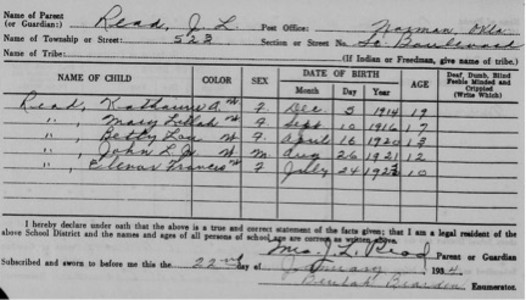 Name of Parent
(or Guardian:) Read, J. L. Post Office: Norman, Okla.
Name of Township or Street: 523 Section or Street No. So. Boulevard
Name of Tribe: (If Indian or Freedman, give name of tribe.)
NAME OF CHILD COLOR SEX DATE OF BIRTH AGE Deaf, Dumb, Blind Feeble Minded and Crippled (Write Which)
Month Day Year
Read, Katharine A. W. F. Dec. 5 1914 19
" , Mary Lullah W. F. Sept 10 1916 17
" , Betty Lou W. F. April 16 1920 13
" , John L Jr W. M. Aug 26 1921 12
" , Elenor Frances W F July 24 1923 10
I hereby declare under oath that the above is a true and correct statement of the facts given; that I am a legal resident of the
above School District and the names and ages of all persons of school age are correct as written above.
Mrs. J. L. Read Parent or Guardian
Subscribed and sworn to before me this the 22nd day of January 1934
Beulah Bearden Enumerator.